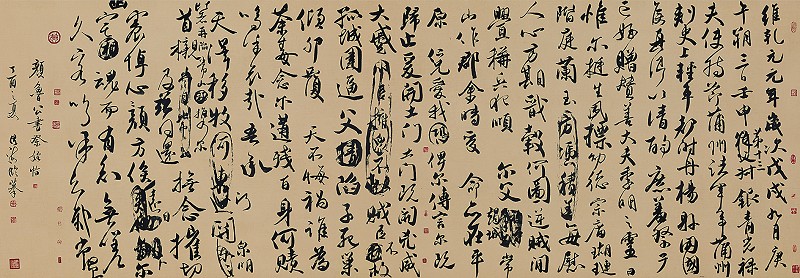 維乾元元年歲次戊戌九月庚
午朔三日壬申第十三叔銀青光祿
夫使持節蒲州諸軍事蒲州
刺史上輕車都尉丹楊縣開國
侯真卿以清酌庶羞祭于
亡姪贈贊善大夫季明之靈曰
惟爾挺生夙標幼德宗廟瑚璉
階庭蘭玉每慰
人心方期戩穀何圖逆賊間
釁稱兵犯順爾父常
山作郡余時受命亦在平
原仁兄愛我俾爾傳言爾既
歸止爰開土門土門既開凶威
大蹙賊臣不救
孤城圍逼父陷子死巢
傾卵覆天不悔禍誰為
荼毒念爾遘殘百身何贖
嗚乎哀哉吾承
天澤移牧河關泉明
比者再陷常山攜爾
首櫬及茲同還撫念摧切
震悼心顏方俟遠日
卜爾幽宅魂而有知無嗟
久客嗚呼哀哉尚饗
顏魯公書祭姪帖
丁酉之夏